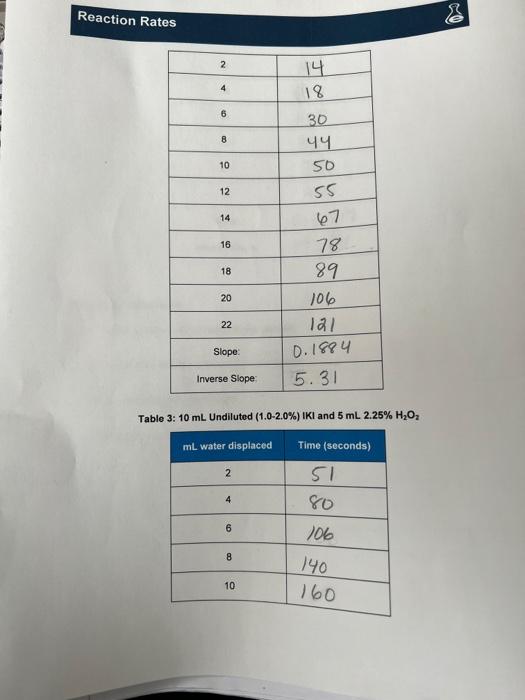 Reaction Rates
2 14
4 18
6 30
8 44
10 50
12 55
14 67
16 78
18 89
20 106
22 121
Slope: 0.1884
Inverse Slope: 5.31
Table 3: 10 mL Undiluted (1.0-2.0%) IKI and 5 mL 2.25% H₂O₂
mL water displaced Time (seconds)
2 51
4 80
6 106
8 140
10 160